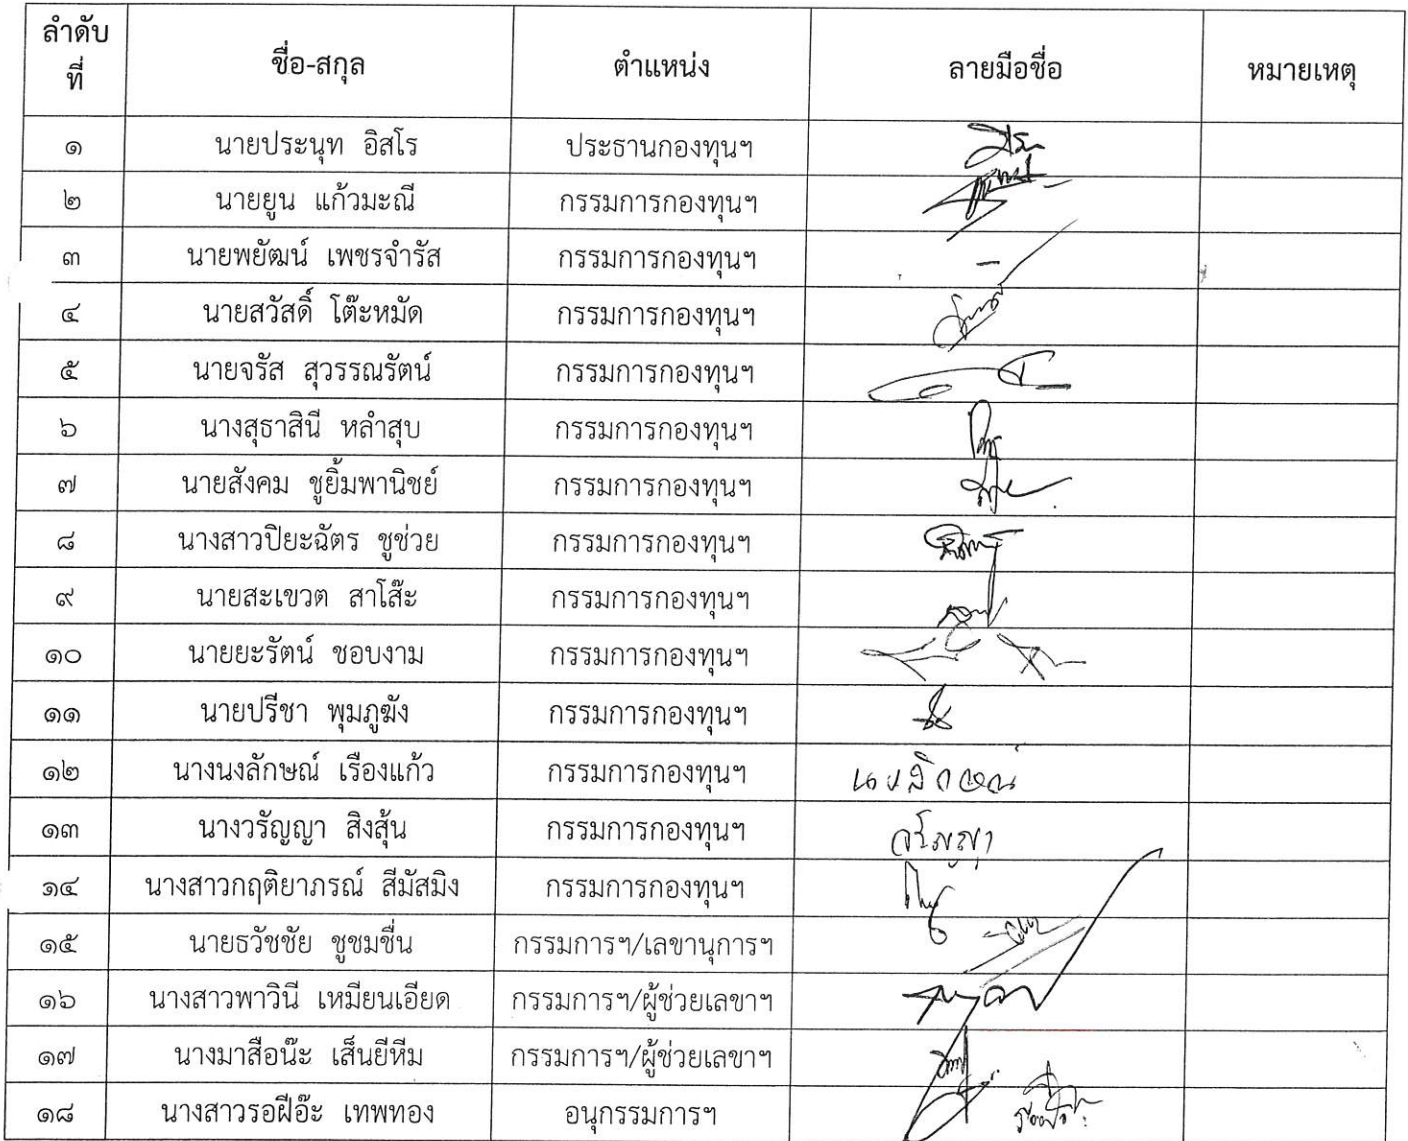 ลำดับที่ ชื่อ-สกุล ตำแหน่ง ลายมือชื่อ หมายเหตุ
๑ นายประนุท อิสโร ประธานกองทุนฯ
๒ นายยูน แก้วมะณี กรรมการกองทุนฯ
๓ นายพยัฒน์ เพชรจำรัส กรรมการกองทุนฯ -
๔ นายสวัสดิ์ โต๊ะหมัด กรรมการกองทุนฯ
๕ นายจรัส สุวรรณรัตน์ กรรมการกองทุนฯ
๖ นางสุธาสินี หลำสุบ กรรมการกองทุนฯ
๗ นายสังคม ชูยิ้มพานิชย์ กรรมการกองทุนฯ
๘ นางสาวปิยะฉัตร ชูช่วย กรรมการกองทุนฯ
๙ นายสะเขวต สาโส๊ะ กรรมการกองทุนฯ
๑๐ นายยะรัตน์ ชอบงาม กรรมการกองทุนฯ
๑๑ นายปรีชา พุมภูฆัง กรรมการกองทุนฯ
๑๒ นางนงลักษณ์ เรืองแก้ว กรรมการกองทุนฯ นงลักษณ์
๑๓ นางวรัญญา สิงสุ้น กรรมการกองทุนฯ วรัญญา
๑๔ นางสาวกฤติยาภรณ์ สีมัสมิง กรรมการกองทุนฯ
๑๕ นายธวัชชัย ชูชมชื่น กรรมการฯ/เลขานุการฯ
๑๖ นางสาวพาวินี เหมียนเอียด กรรมการฯ/ผู้ช่วยเลขาฯ
๑๗ นางมาสือน๊ะ เส็นยีหีม กรรมการฯ/ผู้ช่วยเลขาฯ
๑๘ นางสาวรอฝีอ๊ะ เทพทอง อนุกรรมการฯ